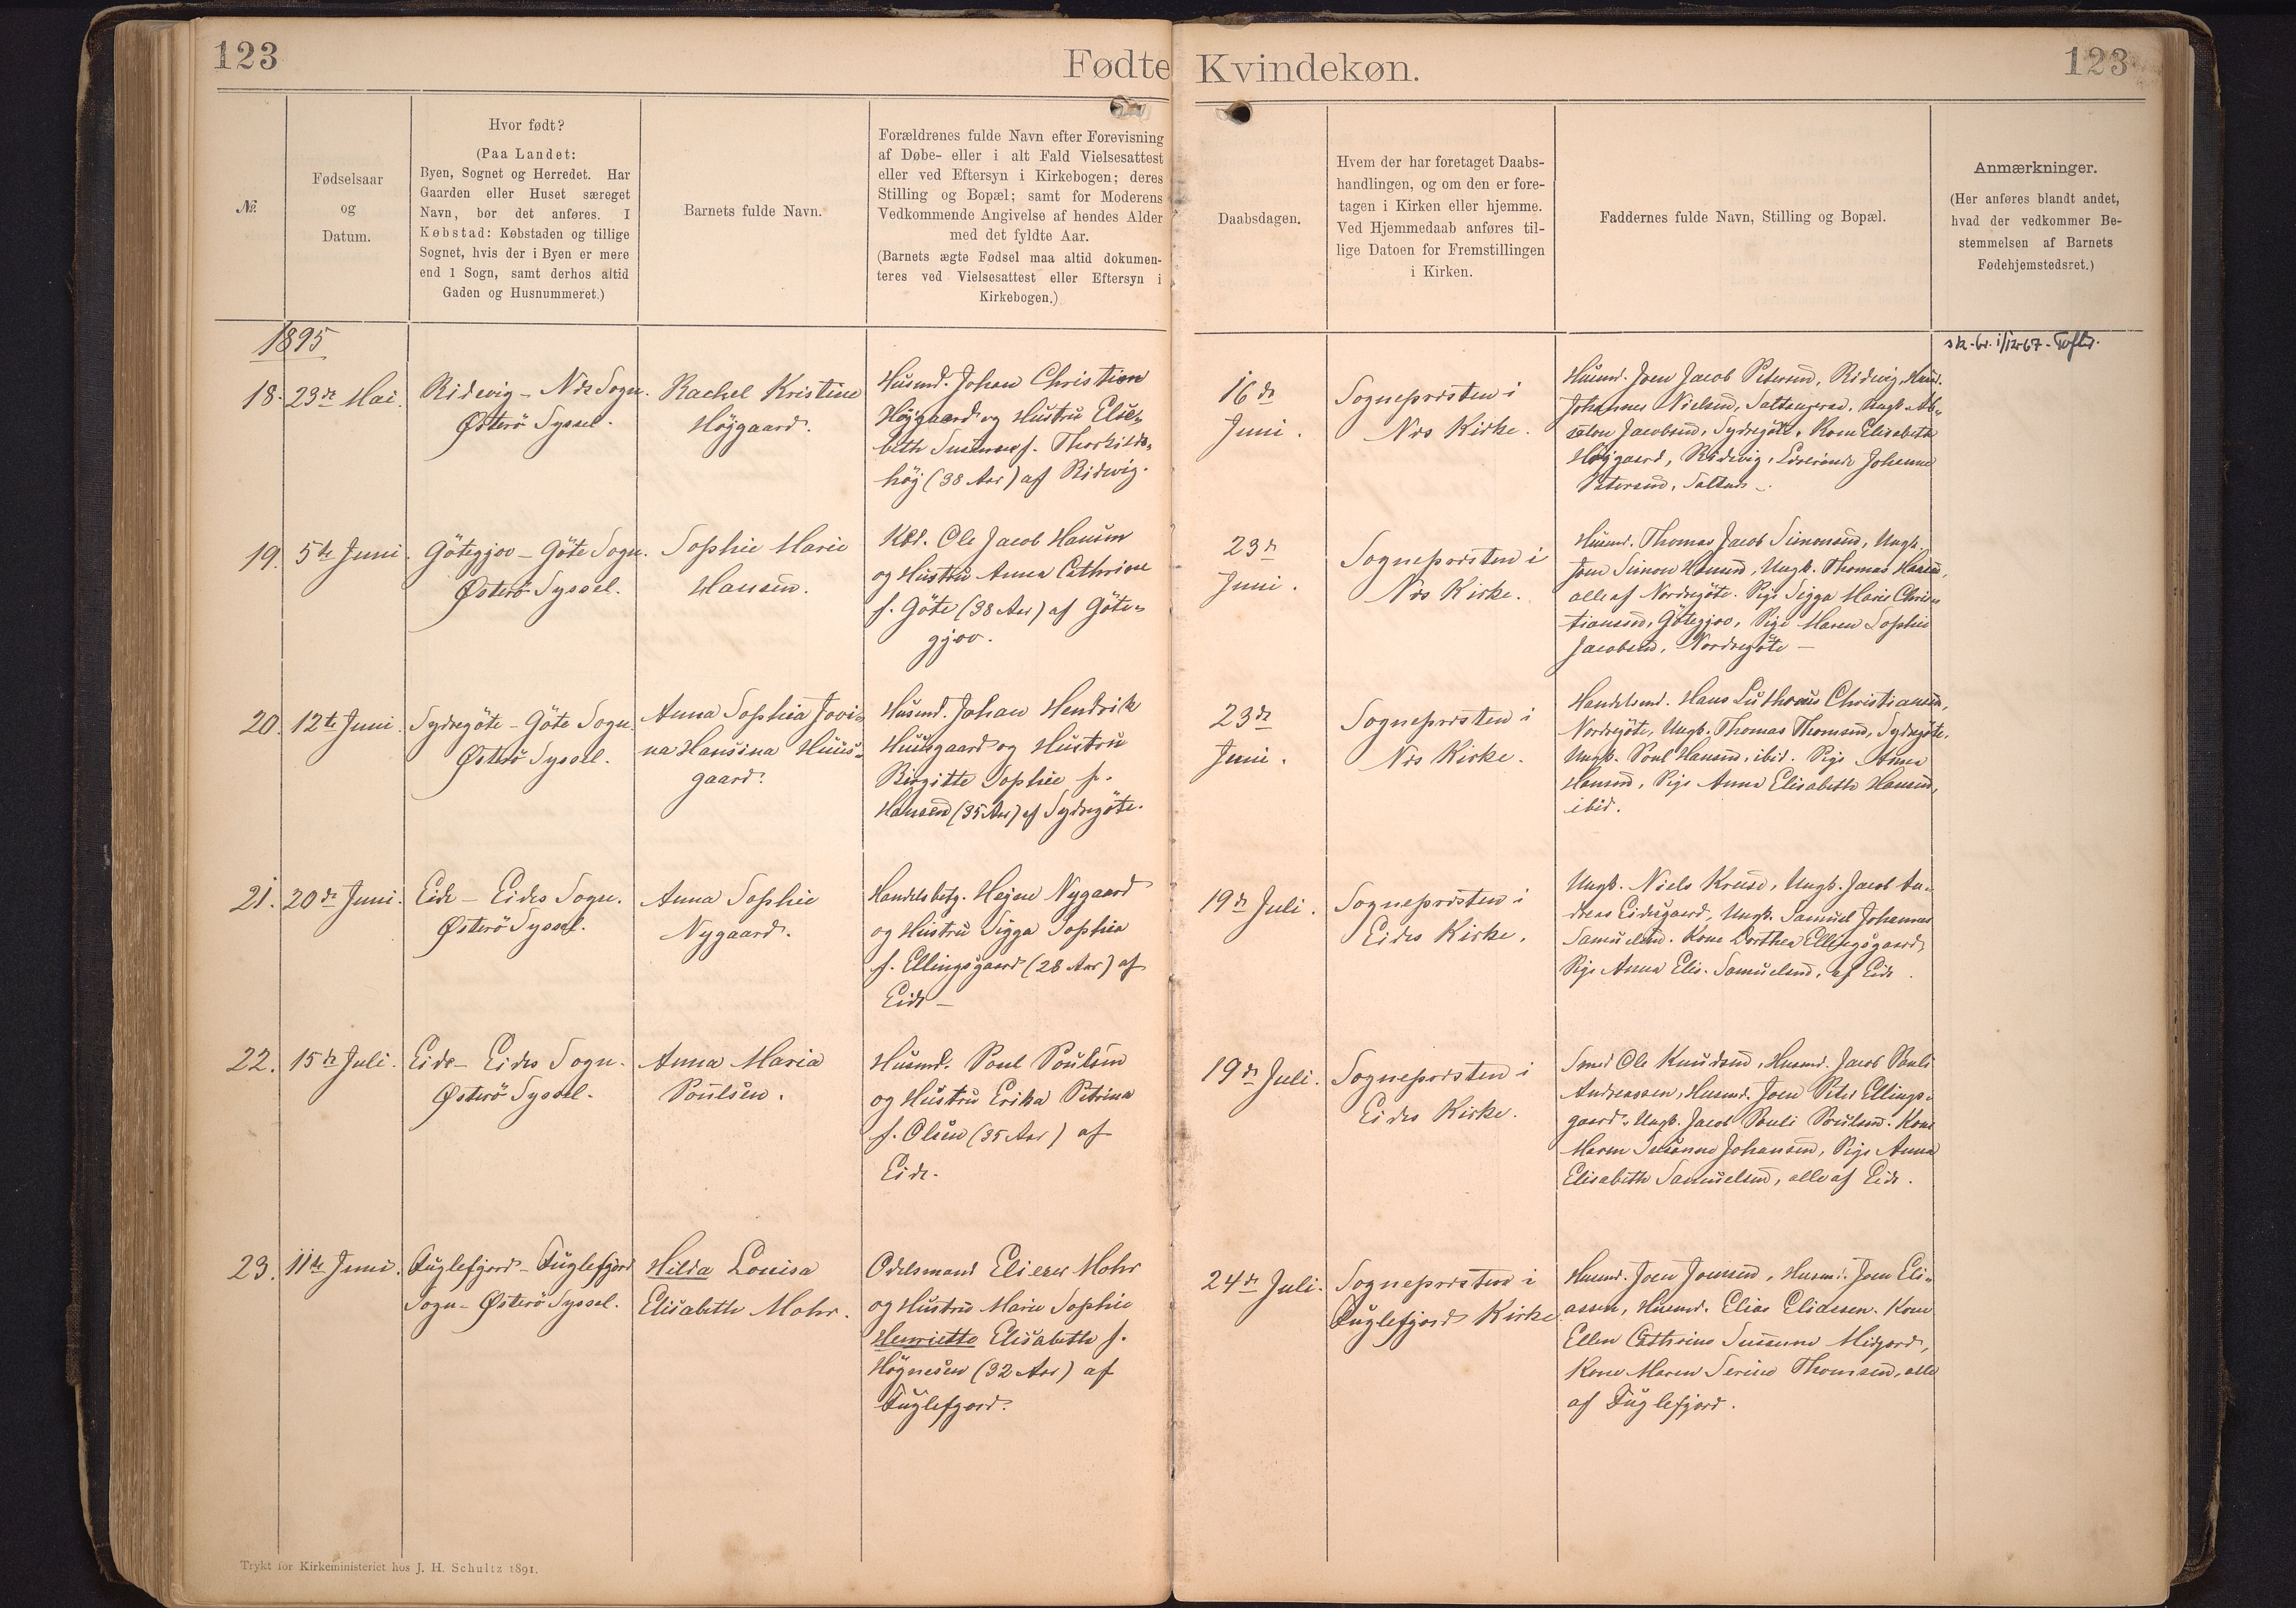 123
Fødte
Kvindekøn.
123
№
Fødselsaar
og
Datum.
Hvor født?
(Paa Landet:
Byen, Sognet og Herredet. Har
Gaarden eller Huset særeget
Navn, bør det anføres. I
Købstad: Købstaden og tillige
Sognet, hvis der i Byen er mere
end 1 Sogn, samt derhos altid
Gaden og Husnummeret.)
Barnets fulde Navn.
Forældrenes fulde Navn efter Forevisning
af Døbe- eller i alt Fald Vielsesattest
eller ved Eftersyn i Kirkebogen; deres
Stilling og Bopæl; samt for Moderens
Vedkommende Angivelse af hendes Alder
med det fyldte Aar.
(Barnets ægte Fødsel maa altid dokumen-
teres ved Vielsesattest eller Eftersyn i
Kirkebogen.)
Daabsdagen.
Hvem der har foretaget Daabs-
handlingen, og om den er fore-
tagen i Kirken eller hjemme.
Ved Hjemmedaab anføres til-
lige Datoen for Fremstillingen
i Kirken.
Faddernes fulde Navn, Stilling og Bopæl.
Anmærkninger.
(Her anføres blandt andet,
hvad der vedkommer Be-
stemmelsen af Barnets
Fødehjemstedsret.)
1895
18. 23de Mai.
Ridevig - Nes Sogn.
Østerö Syssel.
Rachel Kristine
Höjgaard.
Husmd. Johan Christian
Höjgaard og Hustru Elsе-
beth Susanna f. Thorkilds-
höj (38 Aar) af Ridevig.
16de
Juni.
Sognepræsten i
Nes Kirke.
Husmd. Joen Jacob Petersen, Ridevig, Husmd.
Johannes Nielsen, Saltangeraa, Ungk. Ab-
salon Jacobsen, Sydregöte, Kone Elisabeth
Höjgaard, Ridevig, Johanne
Petersen,
sk. br. 1/12-67-
19. 5te Juni.
Götegjov - Göte Sogn.
Østerö Syssel.
Sophie Marie
Hansen.
Kbd. Ole Jacob Hansen
og Hustru Anna Cathrine
f. Göte (38 Aar) af Göte-
gjov.
23de
Juni.
Sognepræsten i
Nes Kirke.
Husmd. Thomas Jacob Simonsen, Ungk.
Joen Simon Hansen, Ungk. Thomas Hansen,
alle af Nordregöte. Pige Sigga Marie Chris-
tiansen, Götegjov, Pige Maren Sophie
Jacobsen, Nordregöte -
20. 12te Juni.
Sydregöte - Göte Sogn.
Østerö Syssel.
Anna Sophia Jovi-
na Hansina Huus-
gaard.
Husmd. Johan Hendrik
Huusgaard og Hustru
Birgitte Sophie f.
Hansen (35 Aar) af Sydregöte.
23de
Juni.
Sognepræsten i
Nes Kirke.
Handelsmd. Hans Christiansen,
Nordregöte, Ungk. Thomas Thomsen, Sydregöte,
Ungk. Poul Hansen, ibid. Pige Anna
Hansen, Pige Anna Elisabeth Hansen,
ibid.
21. 20de Juni.
Eide - Eides Sogn.
Østerö Syssel.
Anna Sophie
Nygaard.
Handelsbetj. Hejne Nygaard
og Hustru Sigga Sophia
f. Ellingsgaard (28 Aar) af
Eide -
19de Juli.
Sognepræsten i
Eides Kirke.
Ungk. Niels Kruse, Ungk. Jacob An-
dreas Eidesgaard, Ungk. Samuel Johannes
Samuelsen. Kone Dorthea Ellingsgaard,
Pige Anna Elis. Samuelsen, af Eide.
22. 15de Juli.
Eide - Eides Sogn.
Østerö Syssel.
Anna Maria
Poulsen.
Husmd. Poul Poulsen
og Hustru Erika Petrina
f. Olsen (35 Aar) af
Eide.
19de Juli.
Sognepræsten i
Eides Kirke.
Smed Ole Knudsen, Husmd. Jacob Pauli
Andreassen, Husmd. Joen Peter Ellings-
gaard, Ungk. Jacob Pauli Poulsen. Kone
Maren Susanne Johansen, Pige Anna
Elisabeth Samuelsen, alle af Eide.
23. 11te Juni.
Fuglefjord - Fuglefjord
Sogn - Østerö Syssel.
Hilda Louisa
Elisabeth Mohr.
Odelsmand Eliezer Mohr
og Hustru Marie Sophie
Henriette Elisabeth f.
Högnesen (32 Aar) af
Fuglefjord.
24de Juli.
Sognepræsten i
Fuglefjords Kirke
Husmd. Joen Joensen, Husmd. Joen Eli-
assen, Husmd. Elias Eliasen. Kone
Ellen Cathrine Susanne Midjord,
Kone Maren Serine Thomsen, alle
af Fuglefjord.
Trykt for Kirkeministeriet hos J. H. Schultz 1891.